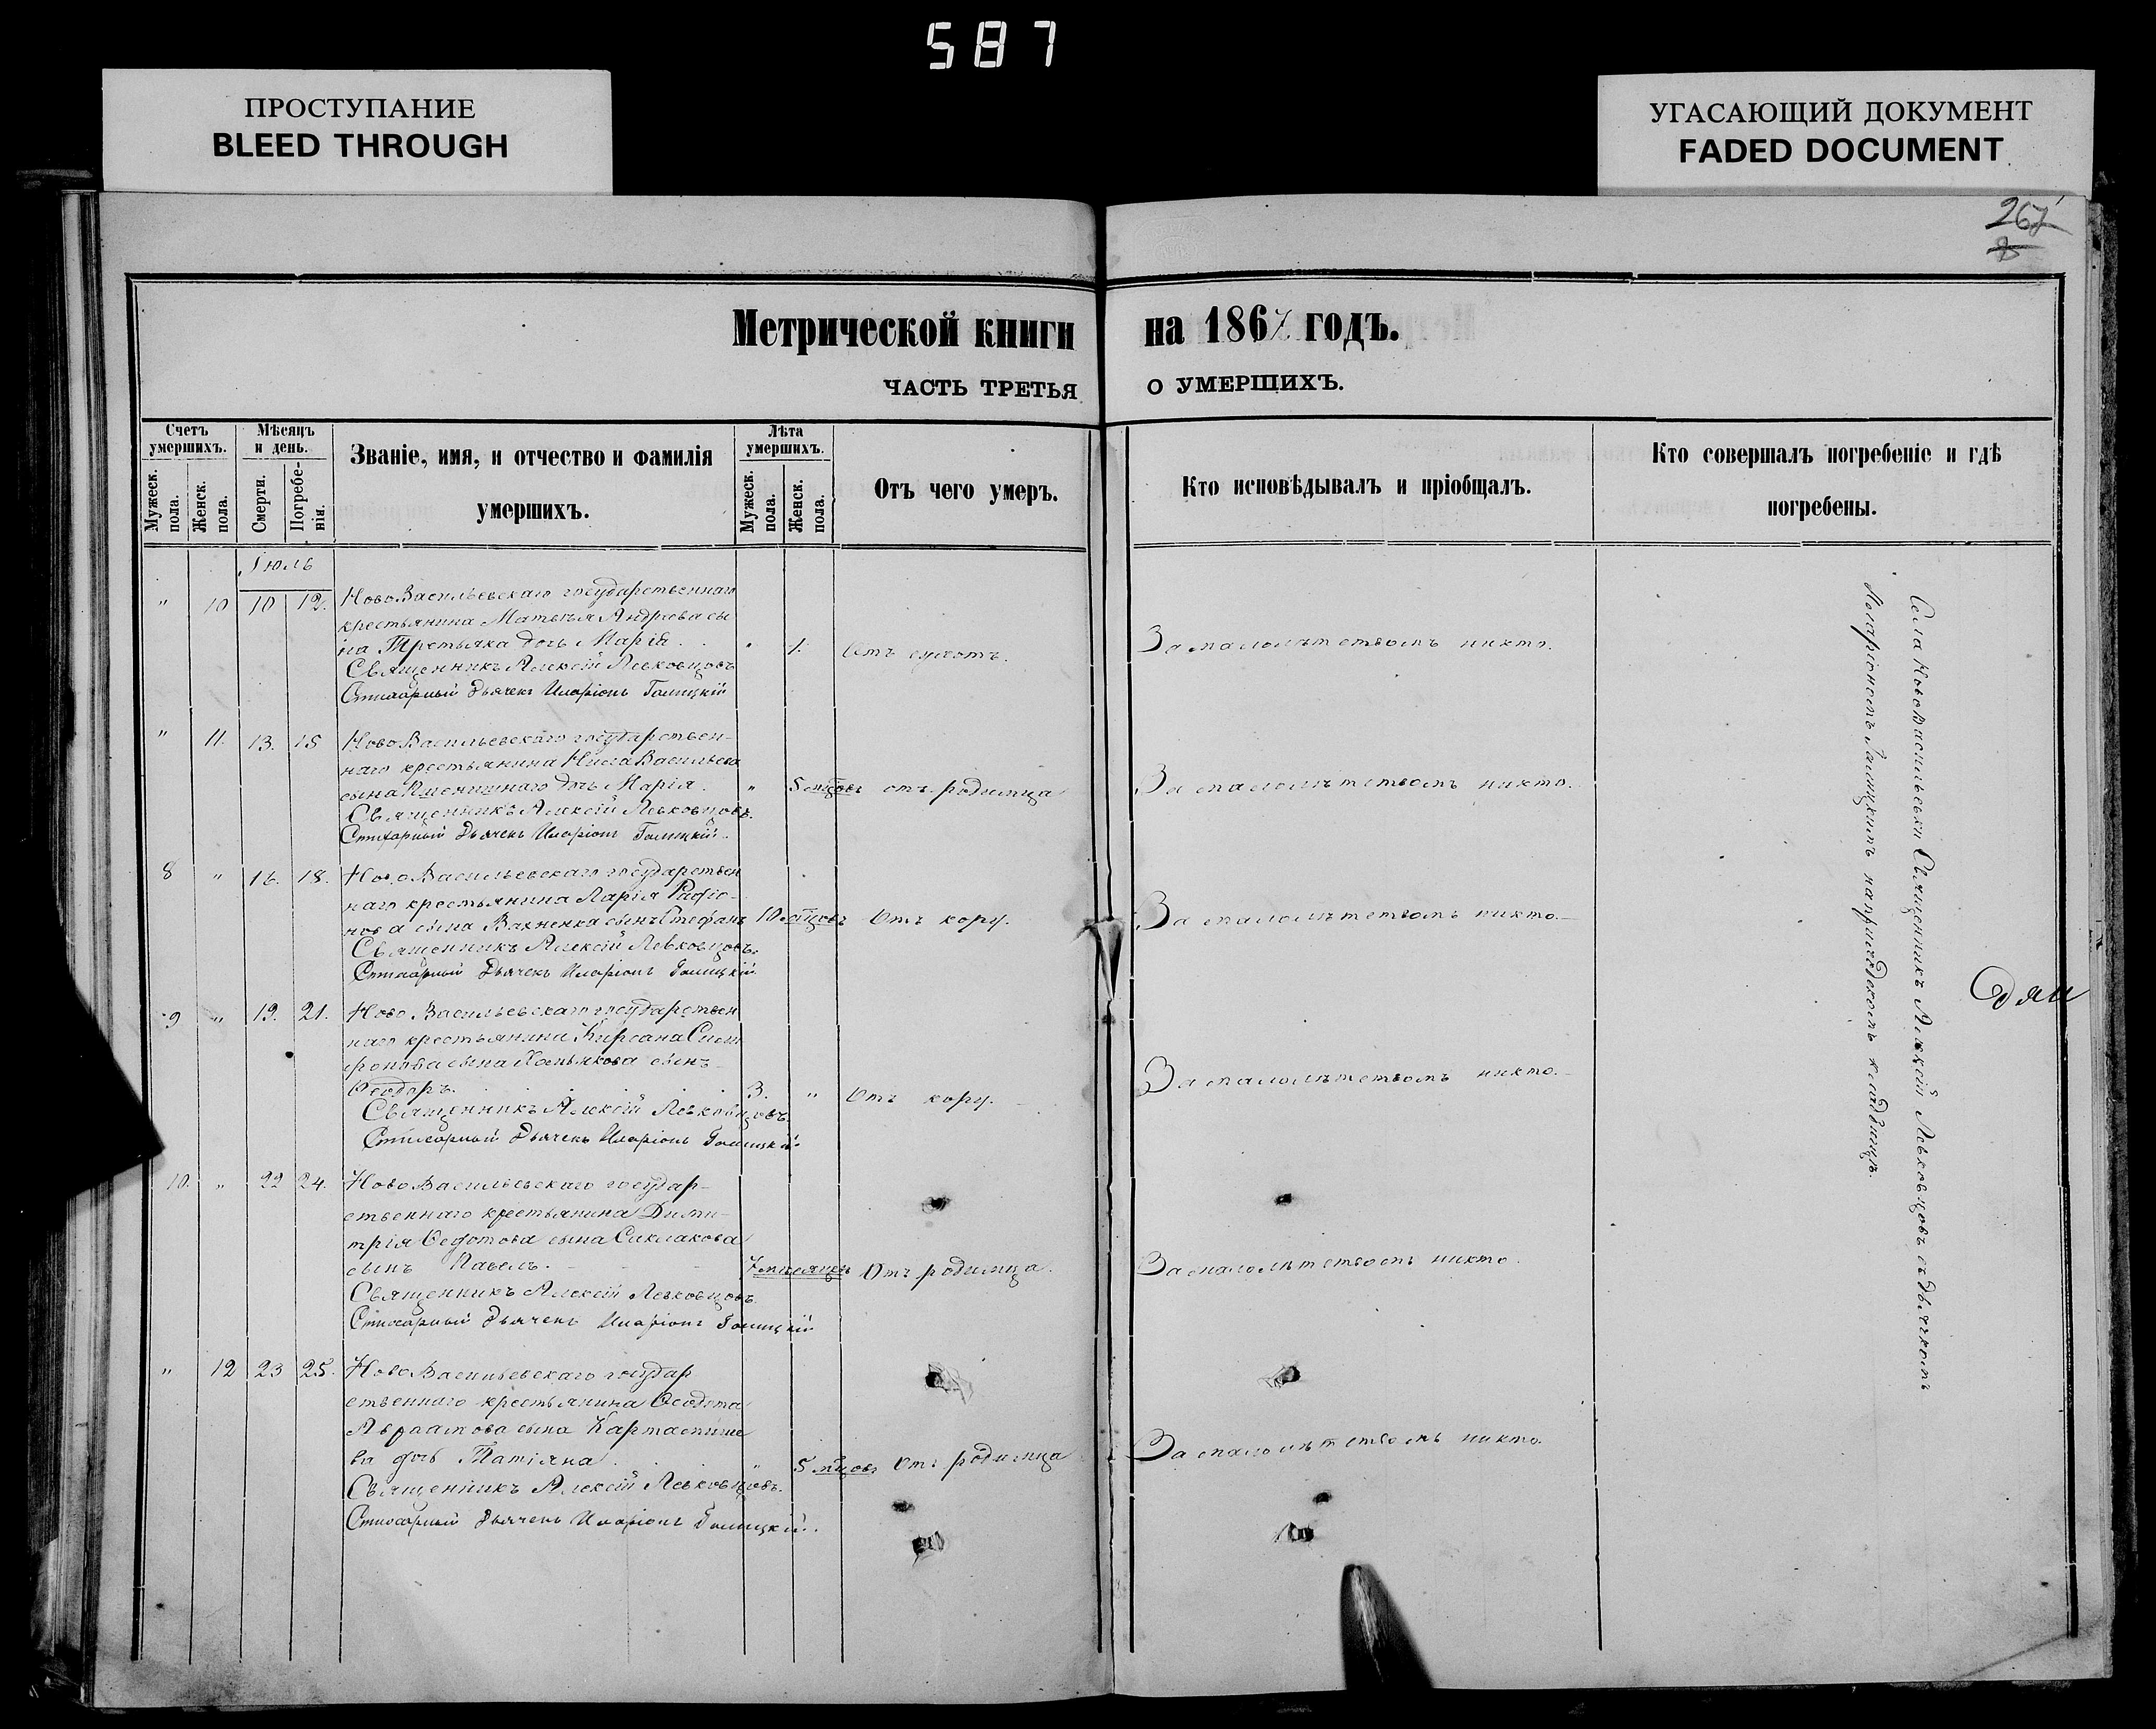 587
ПРОСТУПАНИЕ
BLEED THROUGH
УГАСАЮЩИЙ ДОКУМЕНТ
FADED DOCUMENT
267
8
Метрической книги на 1867 годъ.
ЧАСТЬ ТРЕТЬЯ О УМЕРШИХЪ.
Счетъ умершихъ.
Мужеск. пола.
Женск. пола.
Мѣсяцъ и день.
Смерти.
Погребе-нія.
Званіе, имя, и отчество и фамилія
умершихъ.
Лѣта умершихъ.
Мужеск. пола.
Женск. пола.
Отъ чего умеръ.
Кто исповѣдывалъ и пріобщалъ.
Кто совершалъ погребеніе и гдѣ
погребены.
Іюль
" 10 10 12. НовоВасильевскаго государственнаго
крестьянина Матвѣя Андреева сы
на Третьяка дочь Марія " 1. Отъ сухотъ. За малолѣтствомъ никто.
Священникъ Алексій Левковцовъ
Стихарный Дьячекъ Иларіонъ Галицкій
" 11. 13. 15 НовоВасильевскаго государствен-
наго крестьянина Васильева
сына Пшеничнаго дочь Марія. " 5 мцовъ отъ родимца За малолѣтствомъ никто.
Священникъ Алексій Левковцовъ.
Стихарный Дьячекъ Иларіонъ Галицкій.
8 " 16. 18. НовоВасильевскаго государствен
наго крестьянина Ларія Родіо-
нова сына Вахненка сынъ Стефанъ 10 мцовъ Отъ кору. За малолѣтствомъ никто.
Священникъ Алексій Левковцовъ.
Стихарный Дьячекъ Иларіонъ Галицкій
9 " 19. 21. НовоВасильевскаго государствен
наго крестьянина Кирсана
сына сынъ
Ѳеодоръ. 3. " Отъ кору. За малолѣтствомъ никто.
Священникъ Алексій Левковцовъ.
Стихарный Дьячекъ Иларіонъ Галицкій.
10. " 22 24. НовоВасильевскаго государ-
ственнаго крестьянина Дими-
трія Ѳедотова сына
сынъ Павелъ. 7 мѣсяцевъ Отъ родимца. За малолѣтствомъ никто.
Священникъ Алексій Левковцовъ.
Стихарный Дьячекъ Иларіонъ Галицкій
" 12 23 25. НовоВасильевскаго государ
ственнаго крестьянина Ѳеодота
Авраамова сына
ва дочь Татіяна. " 5 мцовъ Отъ родимца За малолѣтствомъ никто.
Священникъ Алексій Левковцовъ.
Стихарный Дьячекъ Иларіонъ Галицкій.
Села НовоВасильевки Священникъ Алексій Левковцовъ съ Дьячкомъ
Галицкимъ на приходскомъ кладбищѣ.